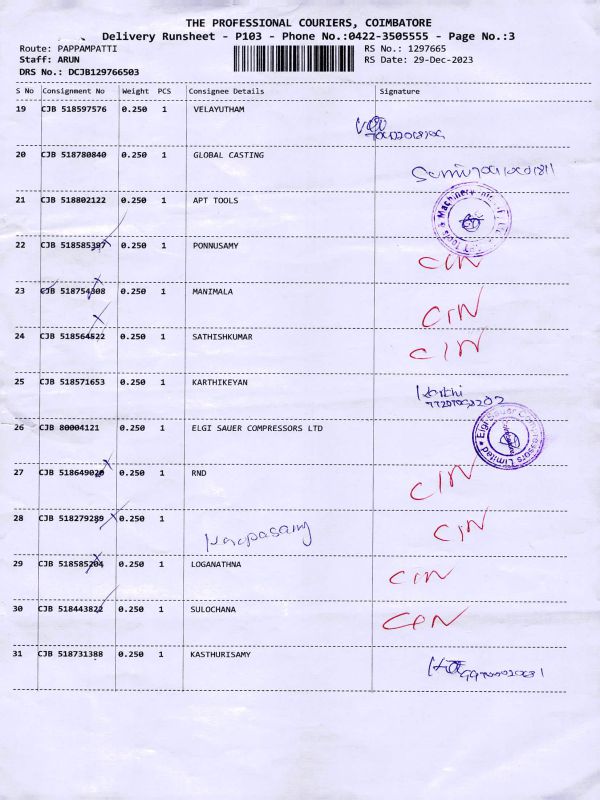 THE PROFESSIONAL COURIERS, COIMBATORE
Delivery Runsheet - P103 - Phone No.:0422-3505555 - Page No.:3
Route: PAPPAMPATTI RS No.: 1297665
Staff: ARUN RS Date: 29-Dec-2023
DRS No.: DCJB129766503
S No Consignment No Weight PCS Consignee Details Signature
19 CJB 518597576 0.250 1 VELAYUTHAM
20 CJB 518780840 0.250 1 GLOBAL CASTING
21 CJB 518802122 0.250 1 APT TOOLS
22 CJB 518585397 0.250 1 PONNUSAMY CIN
23 CJB 518754308 0.250 1 MANIMALA CIN
24 CJB 518564522 0.250 1 SATHISHKUMAR CIN
25 CJB 518571653 0.250 1 KARTHIKEYAN
26 CJB 80004121 0.250 1 ELGI SAUER COMPRESSORS LTD
Elgi Sauer Compressors Limited
27 CJB 518649020 0.250 1 RND CIN
28 CJB 518279289 0.250 1 CIN
29 CJB 518585204 0.250 1 LOGANATHNA CIN
30 CJB 518443822 0.250 1 SULOCHANA CIN
31 CJB 518731388 0.250 1 KASTHURISAMY